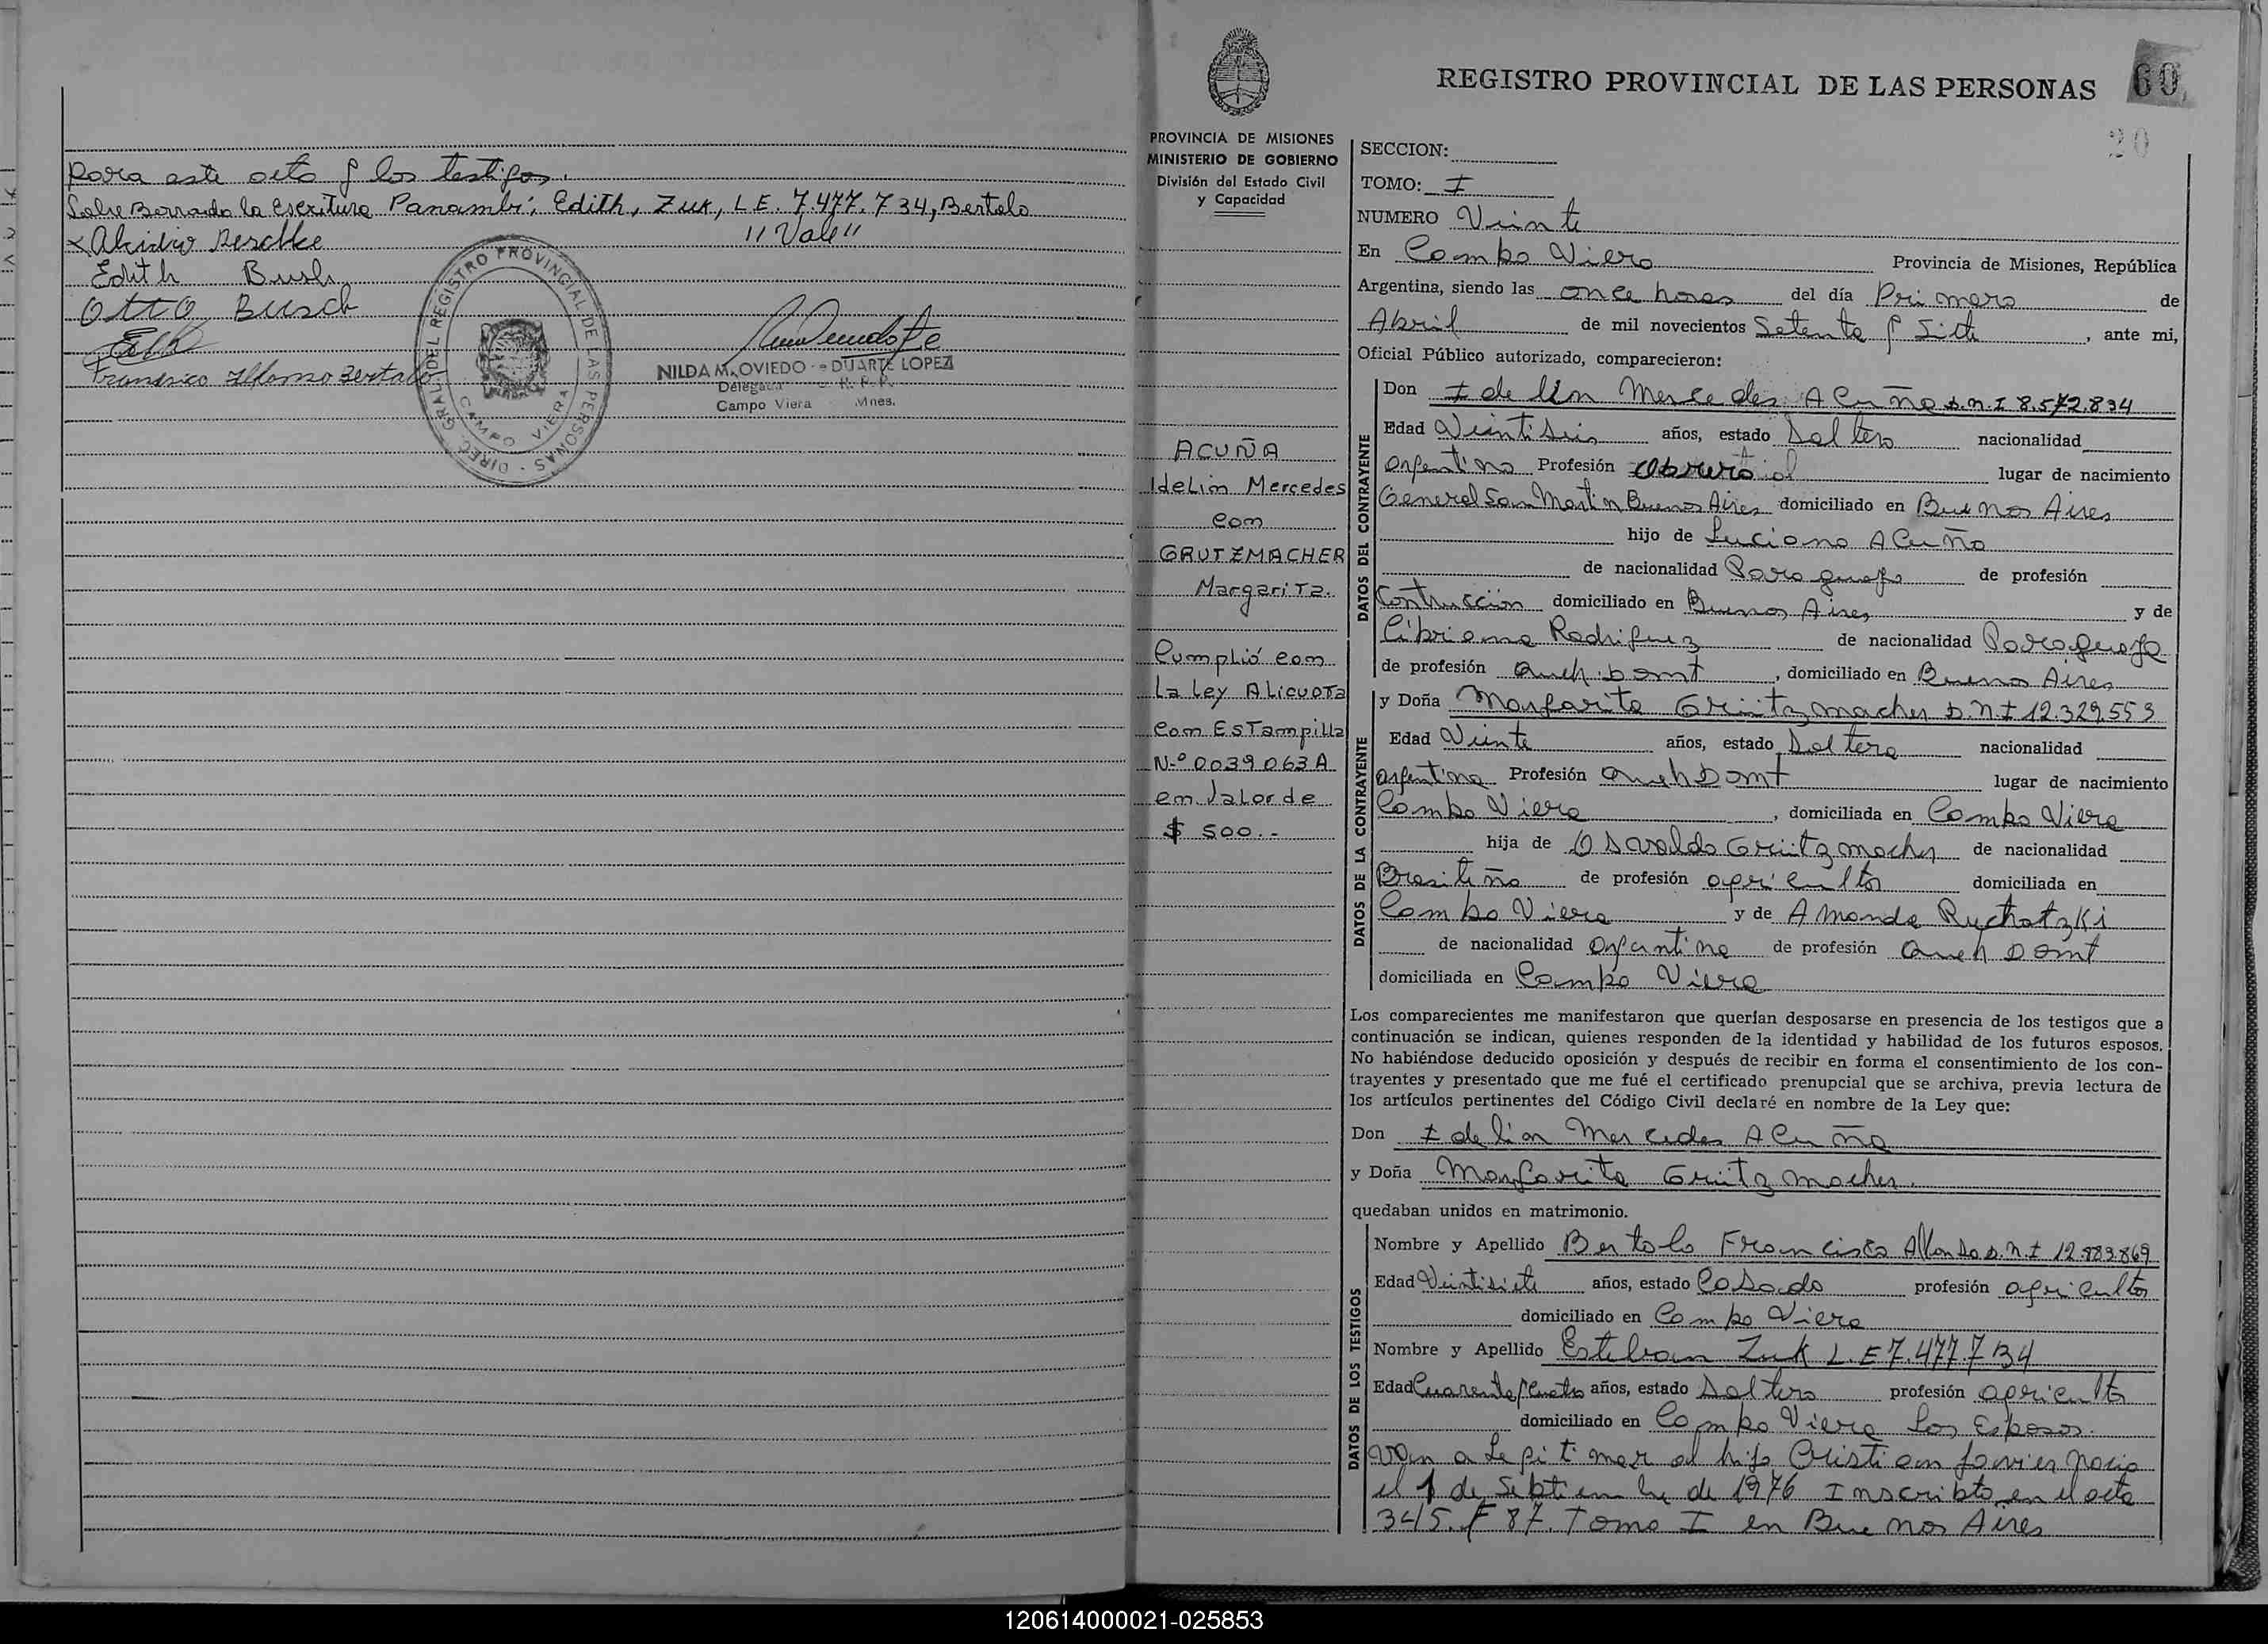 para este acto y los testigos.
Sobre Borrado la escritura Panambi; Edith, Zuk, L.E. 7.477.734, Bertolo
"Vale"
Edith Bush
Otto Busch
Francisco Alfonso Bertolo
DIREC. GRAL. DEL REGISTRO PROVINCIAL DE LAS PERSONAS
CAMPO VIERA
NILDA M. OVIEDO DUARTE LOPEZ
Delegada R. P. P.
Campo Viera Mnes.
PROVINCIA DE MISIONES
MINISTERIO DE GOBIERNO
División del Estado Civil
y Capacidad
ACUÑA
Idelin Mercedes
con
GRUTZMACHER
Margarita.
Cumplió con
la Ley Alicuota
con Estampilla
N-º 0039063A
en Valor de
$ 500.-
REGISTRO PROVINCIAL DE LAS PERSONAS
60
20
SECCION:
TOMO: I
NUMERO Veinte
En Campo Viera Provincia de Misiones, República
Argentina, siendo las once horas del día Primero de
Abril de mil novecientos Setenta y Siete, ante mi,
Oficial Público autorizado, comparecieron:
DATOS DEL CONTRAYENTE
Don Idelin Mercedes Acuña D.N.I 8.572.834
Edad Veintiseis años, estado Soltero nacionalidad
Argentino Profesión Obrero lugar de nacimiento
General San Martin Buenos Aires domiciliado en Buenos Aires
hijo de Luciano Acuña
de nacionalidad Paraguayo de profesión
Contrucción domiciliado en Buenos Aires y de
Cipriana Rodriguez de nacionalidad Paraguaya
de profesión Queh. Domt, domiciliado en Buenos Aires
DATOS DE LA CONTRAYENTE
y Doña Margarita Grützmacher D.N.I 12.329.553
Edad Veinte años, estado Soltera nacionalidad
Argentina Profesión Queh Domt lugar de nacimiento
Campo Viera, domiciliada en Campo Viera
hija de Osvaldo Grützmacher de nacionalidad
Brasileño de profesión agricultor domiciliada en
Campo Viera y de Amanda Ruchatzki
de nacionalidad Argentina de profesión Queh Domt
domiciliada en Campo Viera
Los comparecientes me manifestaron que querían desposarse en presencia de los testigos que a
continuación se indican, quienes responden de la identidad y habilidad de los futuros esposos.
No habiéndose deducido oposición y después de recibir en forma el consentimiento de los con-
trayentes y presentado que me fué el certificado prenupcial que se archiva, previa lectura de
los artículos pertinentes del Código Civil declaré en nombre de la Ley que:
Don Idelin Mercedes Acuña
y Doña Margarita Grützmacher.
quedaban unidos en matrimonio.
DATOS DE LOS TESTIGOS
Nombre y Apellido Bertolo Francisco Alfonso D.N.I 12.883.869
Edad Veintisiete años, estado Casado profesión agricultor
domiciliado en Campo Viera
Nombre y Apellido Esteban Zuk L.E 7.477.734
Edad Cuarenta y Cuatro años, estado Soltero profesión agricultor
domiciliado en Campo Viera Los Esposos.
Van a Legitimar al hijo Cristian Javier nacio
el 1 de Septiembre de 1976 Inscripto en el acta
345. F 87. Tomo I en Buenos Aires
120614000021-025853